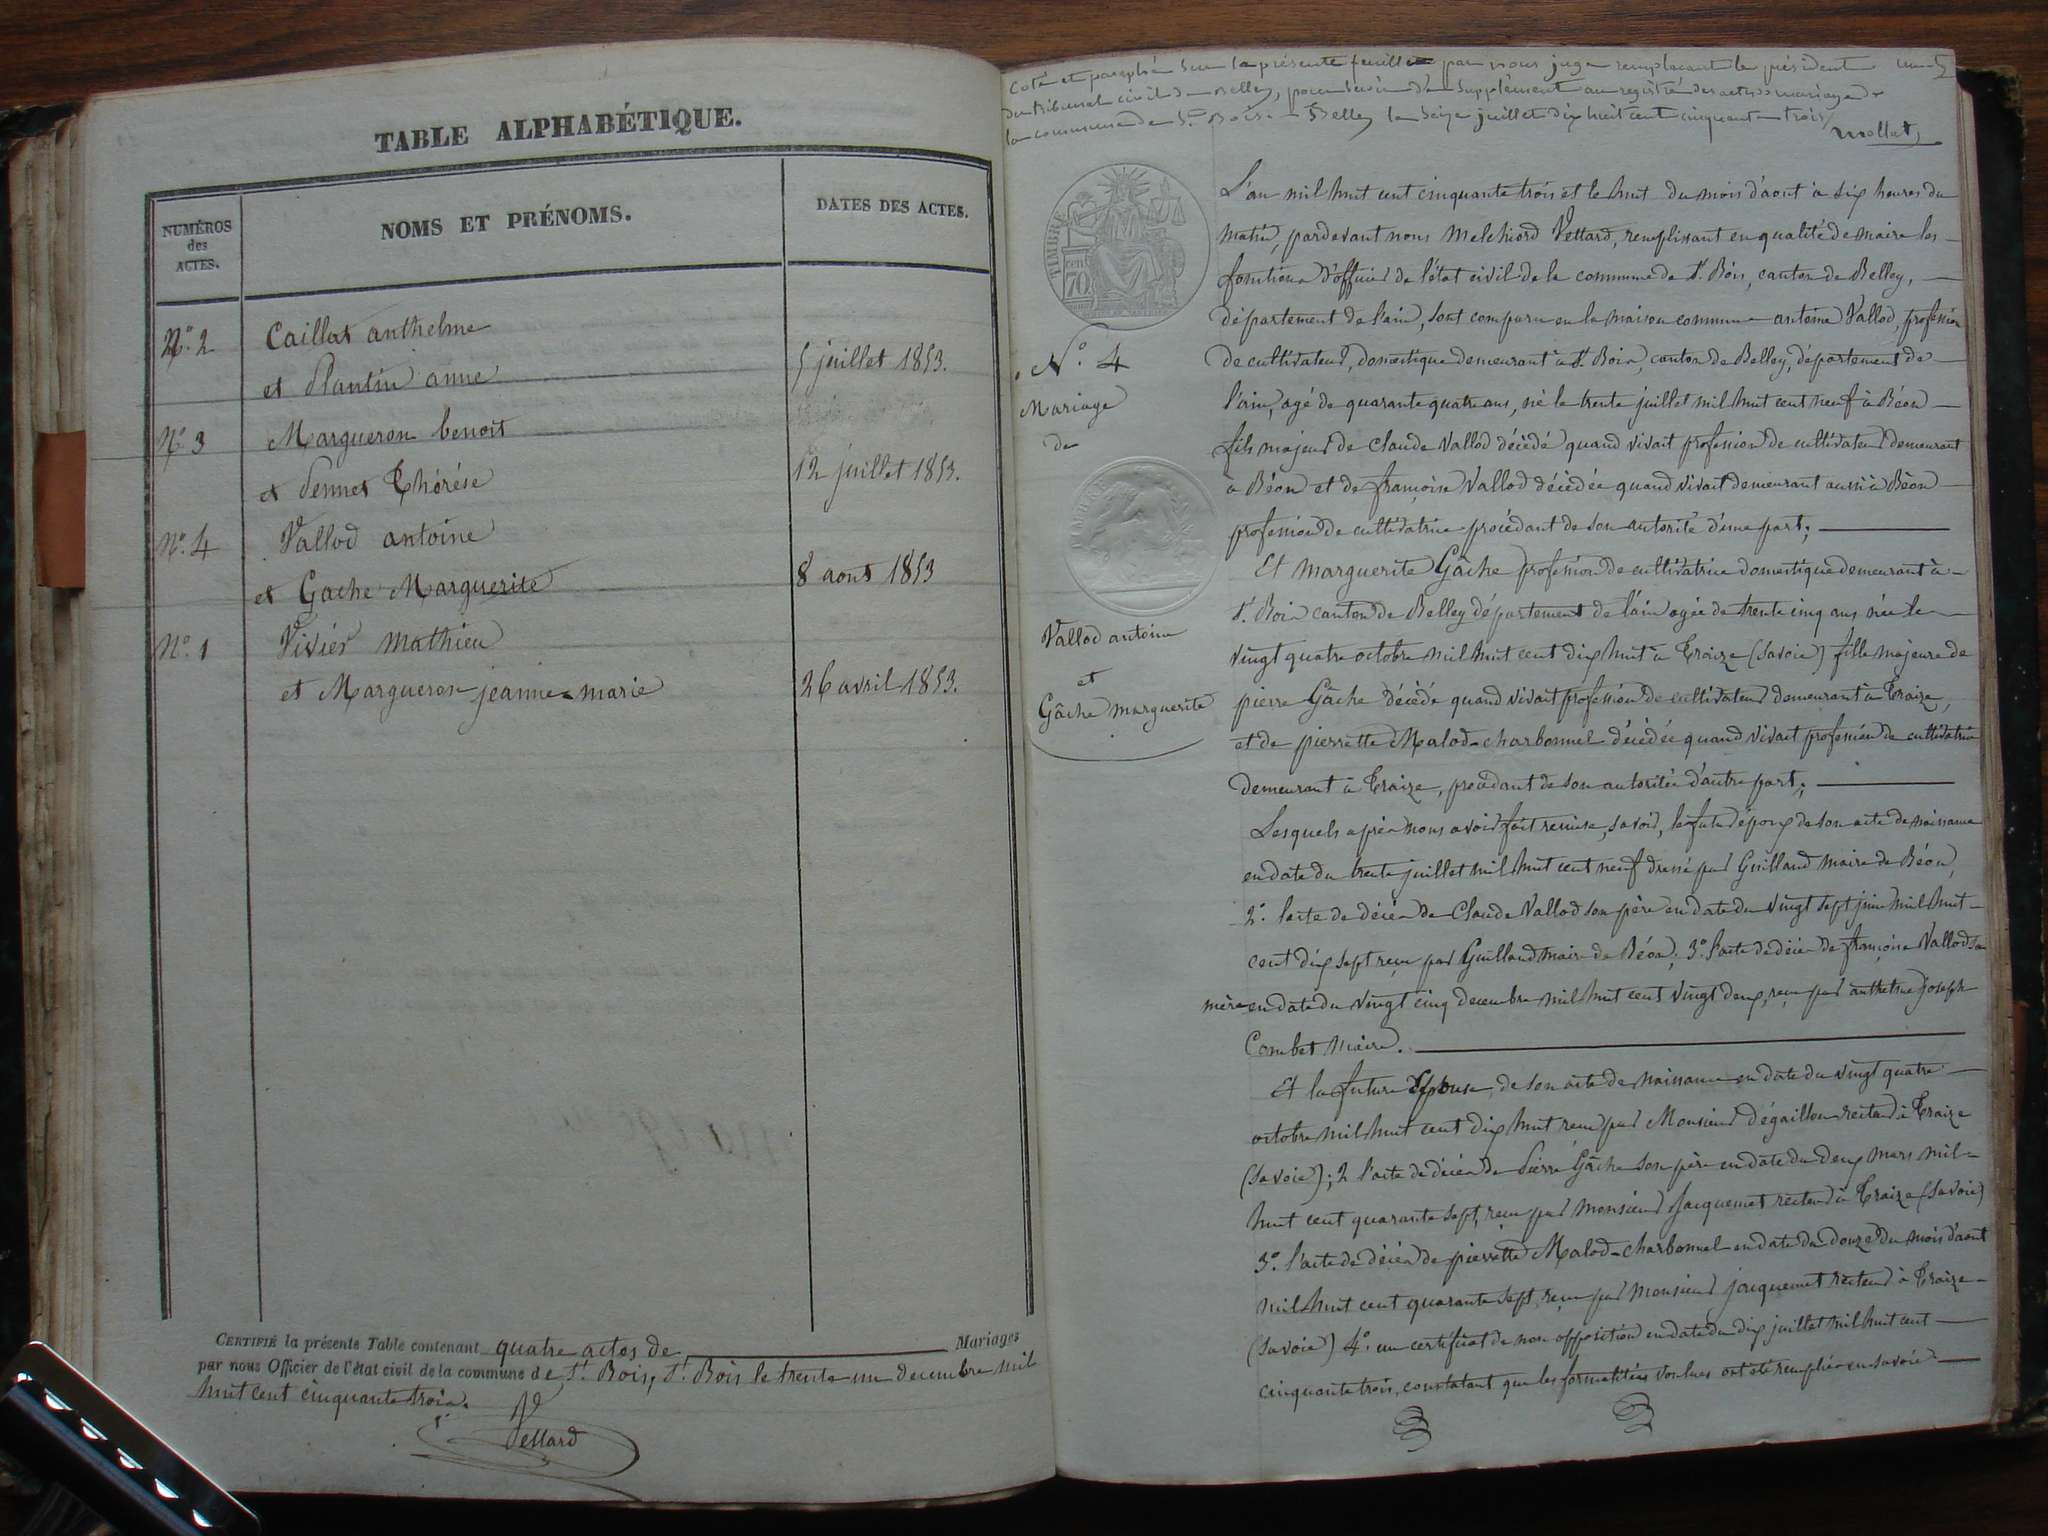 TABLE ALPHABÉTIQUE.
NUMÉROS
des
ACTES.
NOMS ET PRÉNOMS.
DATES DES ACTES.
N.º 2 Caillat anthelme
et Plantin anne 5 juillet 1853.
Nº 3 Margueron benoit
et Pennet Thérése 12 juillet 1853.
Nº. 4 Vallod antoine
et Gache Marguerite 8 aout 1853
Nº. 1 Vivier Mathieu
et Margueron jeanne-marie 26 avril 1853.
CERTIFIÉ la présente Table contenant quatre actes de Mariages
par nous Officier de l'état civil de la commune de St. Bois, St. Bois le trente un decembre mil
huit cent cinquante trois.
Vettard
Coté et paraphé sur la présente feuille par nous juge remplacant le président
du tribunal civil de Belley, pour servir de supplément au registre des actes de mariage de
la commune de St. Bois. Belley le seize juillet dix huit cent cinquante trois
Mollet
TIMBRE
70
Nº. 4
Mariage
de
Vallod antoine
et
Gâche marguerite
L'an mil huit cent cinquante trois et le huit du mois d'aout à six heures du
matin, pardevant nous Melchiord Vettard, remplissant en qualité de maire les
fonctions d'officier de l'état civil de la commune de St. Bois, canton de Belley,
département de l'ain, sont comparu en la maison commune antoine Vallod, profession
de cultivateur, domestique demeurant à St Bois, canton de Belley, département de
l'ain, agé de quarante quatre ans, né le trente juillet mil huit cent neuf à Béon
fils majeur de Claude Vallod décédé quand vivait profession de cultivateur demeurant
à Béon et de françoise Vallod décédée quand vivait demeurant aussi à Béon
profession de cultivatrice procédant de son autorité d'une part;
Et Marguerite Gâche profession de cultivatrice domestique demeurant à
St. Bois canton de Belley département de l'ain agée de trente cinq ans née le
vingt quatre octobre mil huit cent dix huit à Traize (Savoie) fille majeure de
pierre Gâche décédé quand vivait profession de cultivateur demeurant à Traize,
et de pierrette Malod-charbonnel décédée quand vivait profession de cultivatrice
demeurant à Traize, procédant de son autorité d'autre part;
Lesquels après nous avoir fait remise, savoir, le futur époux de son acte de naissance
en date du trente juillet mil huit cent neuf dressé par Guilland maire de Béon,
2º. l'acte de décès de Claude Vallod son père en date du vingt sept juin mil huit
cent dix sept reçu par Guilland maire de Béon; 3º l'acte de décès de françoise Vallod sa
mère en date du vingt cinq decembre mil huit cent vingt deux, reçu par anthelme joseph
Combet maire.
Et la future Epouse, de son acte de naissance en date du vingt quatre
octobre mil huit cent dix huit reçu par Monsieur dégaillon recteur à Traize
(Savoie); 2 l'acte de décès de Pierre Gâche son père en date du deux mars mil
huit cent quarante sept, reçu par Monsieur Jacquemet recteur à Traize (Savoie)
3º. l'acte de décès de pierrette Malod-charbonnel en date du douze du mois d'aout
mil huit cent quarante sept, reçu par Monsieur jacquemet recteur à Traize
(Savoie) 4º. un certificat de non opposition en date du dix juillet mil huit cent
cinquante trois, constatant que les formalités voulues ont été remplies en savoie.